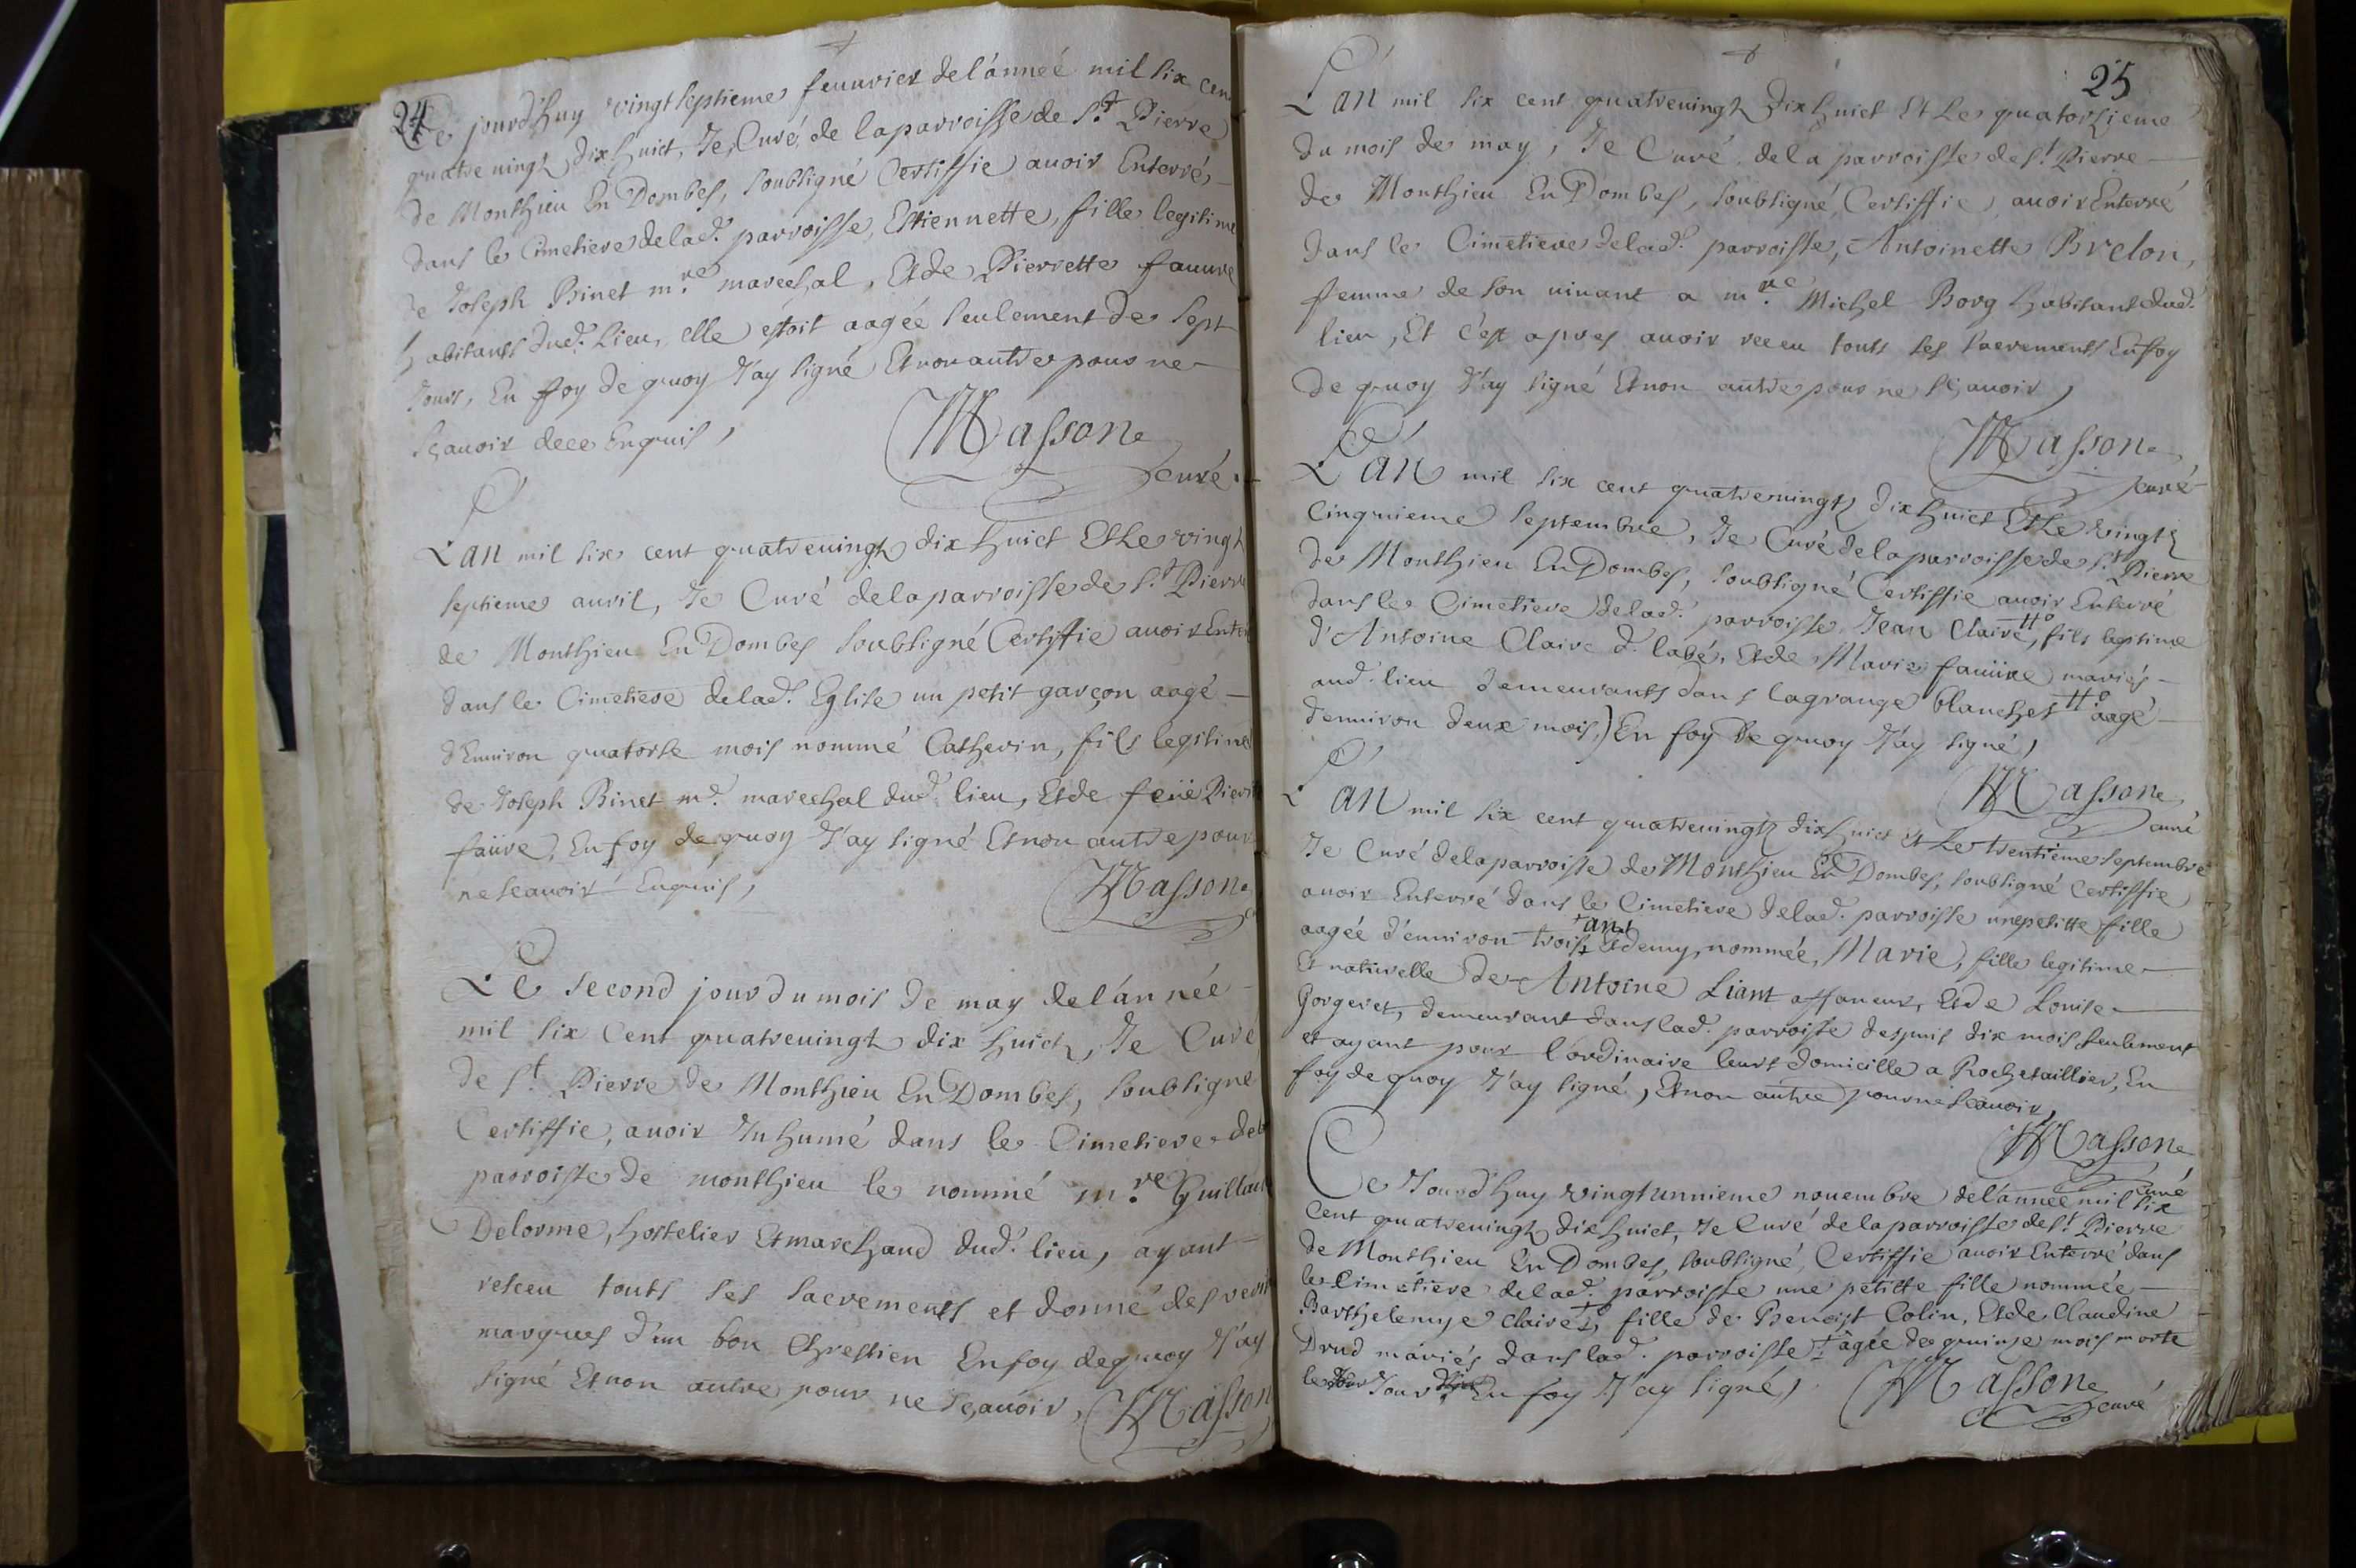 24
Ce jourd'huy vingt septieme feuurier de l'anneé mil six cen
quatre uingt dix huict, Je Curé de la parroisse de St. Pierre
de Monthieu En Dombes, soubsigné Certiffie auoir Enterré
dans le Cimetiere de lad. parroisse, Estiennette, fille legitime
de Joseph Binet mre. marechal, Et de Pierrette fauure
habitants dud. Lieu, elle estoit aagée seulement de sept
Jours, En foy de quoy J'ay signé Et non autre pour ne
sçauoir de ce Enquis,
Masson
curé.
L'an mil six cent quatreuingt dix huict Et Le vingt
septieme auril, Je Curé de la parroisse de St. Pierre
de Monthieu En Dombes soubsigné Certiffie auoir Enter
dans le Cimetiere de lad. Eglise un petit garçon aagé
d'Enuiron quatorse mois nommé Catherin, fils legitime
de Joseph Binet md. marechal dud. lieu, Et de feüe Pierr
faüre, En foy de quoy J'ay signé Et non autre pour
ne scauoir Enquis,
Masson
Le second jour du mois de may de l'année
mil six Cent quatreuingt dix huict, Je Curé
de St. Pierre de Monthieu En Dombes, soubsigné
Certiffie, auoir Inhumé dans le Cimetiere de la
parroisse de monthieu le nommé mre. Guillau
Delorme, hostelier Et marchand dud. lieu, ayant
reseu touts ses sacrements et donné des veri
marques d'un bon Chrestien En foy de quoy J'ay
signé Et non autre pour ne sçauoir, Masson
25
L'an mil six cent quatreuingt dix huict Et Le quatorsieme
du mois de may, Je Curé de la parroisse de St. Pierre
de Monthieu En Dombes, soubsigné, Certiffie, auoir Enterré
dans le Cimetiere de lad. parroisse, Antoinette Brelon,
femme de son uiuant a mre. Michel Borg habitant dud.
lieu, Et c'est apres auoir receu touts ses sacrements En foy
de quoy J'ay signé Et non autre pour ne sçauoir,
Masson
curé
L'an mil six cent quatreuingt dix huict Et Le vingt
Cinquieme septembre, Je Curé de la parroisse de St. Pierre
de Monthieu En Dombes, soubsigné Certiffie auoir Enterré
dans le Cimetiere de lad. parroisse Jean Claire, fils legitime
d'Antoine Claire d. labé, Et de Marie fauüre mariés
aud. lieu demeurants dans la grange blanche aagé
d'enuiron deux mois, En foy de quoy J'ay signé,
Masson
curé
L'an mil six cent quatreuingt dix huict et Le trentieme septembre
Je Curé de la parroisse de Monthieu En Dombes, soubsigné Certiffie
auoir Enterré dans le Cimetiere de lad. parroisse une petitte fille
aagée d'enuiron trois ans et demy, nommée, Marie, fille legitime
Et naturelle de Antoine Liant affaneur, Et de Louise
Gorgeret, demeurant dans lad. parroisse despuis dix mois seulement
et ayant pour l'ordinaire leurs domicille a Rochetaillier, En
foy de quoy J'ay signé, Et non autre pour ne scauoir,
Masson
curé
Ce Jourd'huy vingt unnieme nouembre de l'annee mil six
Cent quatreuingt dix huict, Je Curé de la parroisse de St. Pierre
de Monthieu En Dombes, soubsigné, Certiffie auoir Enterré dans
le Cimetiere de lad. parroisse une petitte fille nommée
Barthelemye Claire, fille de Benoist Colin, Et de Claudine
Drud mariés dans lad. parroisse âgée de quinze mois morte
le Jour En foy J'ay signé,
Masson
curé